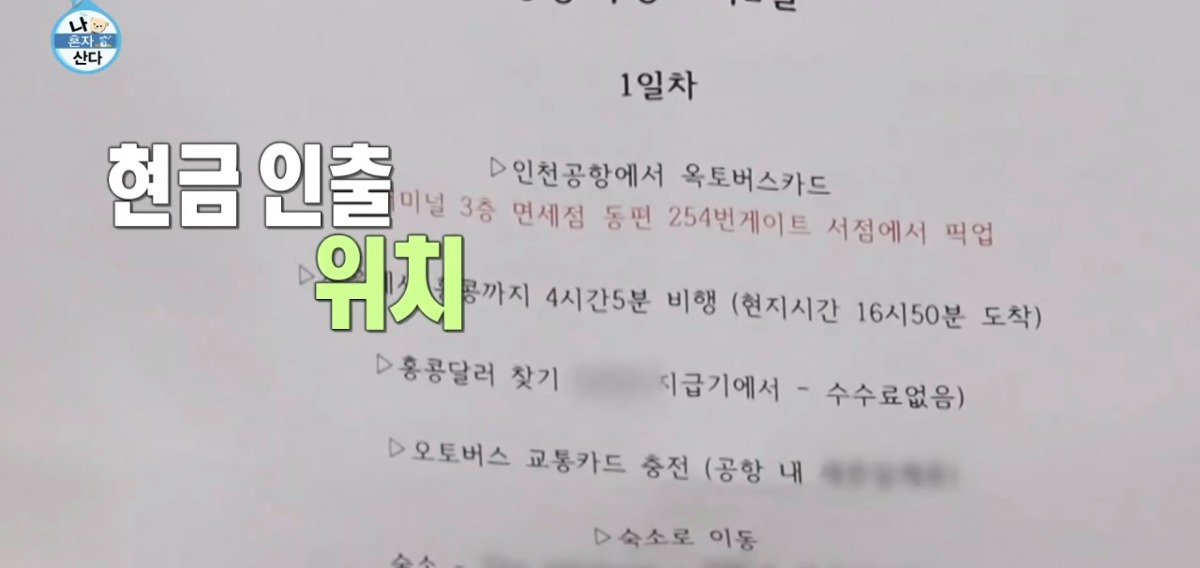 나
혼자
산다
1일차
현금 인출
위치
▷인천공항에서 옥토버스카드
미널 3층 면세점 동편 254번게이트 서점에서 픽업
▷ 홍콩까지 4시간5분 비행 (현지시간 16시50분 도착)
▷홍콩달러 찾기 지급기에서 - 수수료없음)
▷오토버스 교통카드 충전 (공항 내
▷숙소로 이동
숙소 -